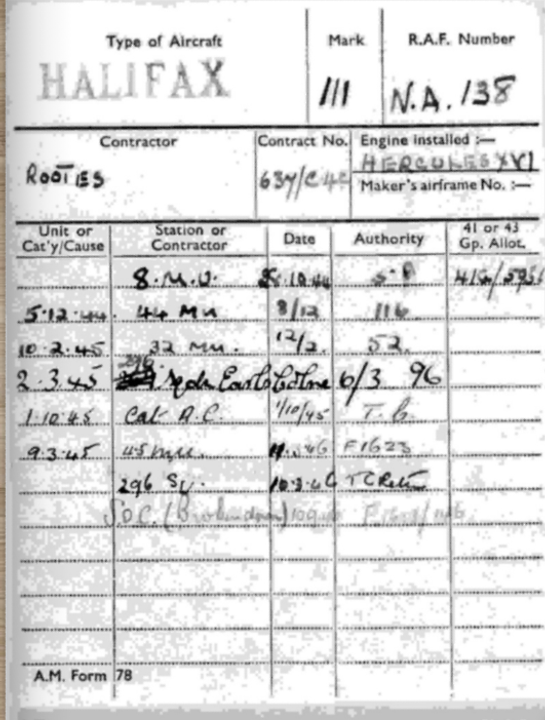 Type of Aircraft
HALIFAX
Mark
III
R.A.F. Number
N.A. 138
Contractor
ROOTES
Contract No.
637/C4C
Engine installed :—
HERCULES XVI
Maker's airframe No. :—
Unit or Cat'y/Cause Station or Contractor Date Authority 41 or 43 Gp. Allot.
8. M.U. 10.44 41G/
5.12.44. 44 Mu 8/12 116
10.2.45 32 Mu. 12/2. 52
2.3.45 296 Sqdn Earls Colne 6/3 96
1.10.45 Cat A.C. 1/10/45
9.3.45 45 Mu. 46 F1623
296 Sq. 10.3.46
S.O.C.
A.M. Form 78